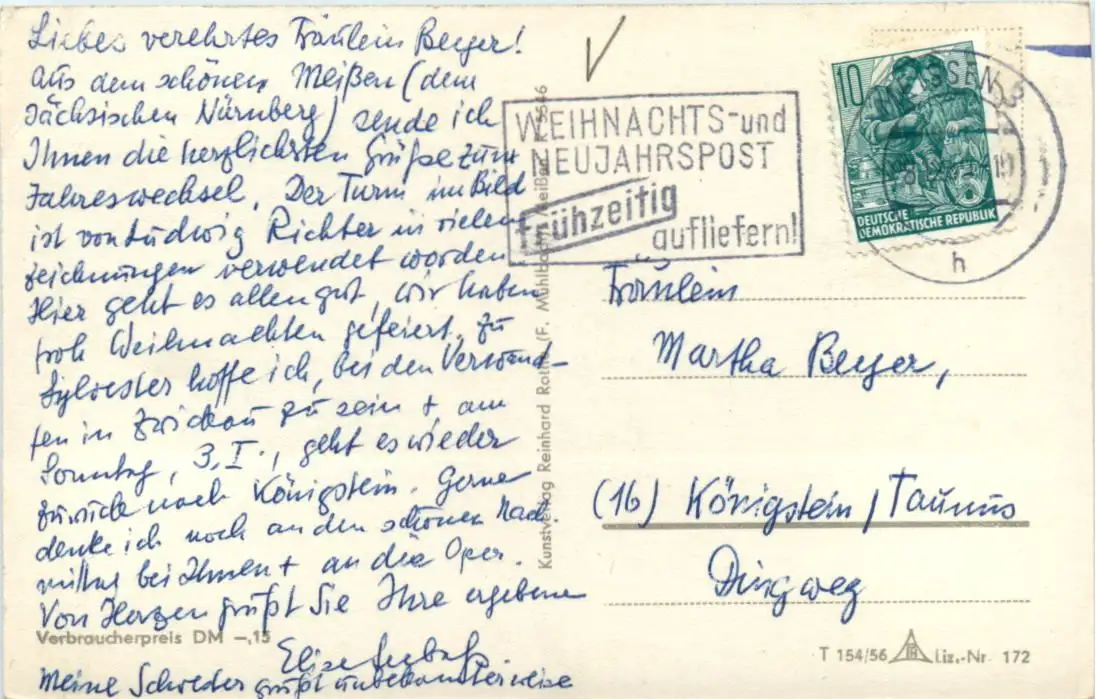 Liebes verehrtes Fräulein Beyer!
Aus dem schönen Meißen (dem
sächsischen Nürnberg) sende ich
Ihnen die herzlichsten Grüße zum
Jahreswechsel. Der Turm im Bild
ist von Ludwig Richter in vielen
Zeichnungen verwendet worden.
Hier geht es allen gut, wir haben
froh Weihnachten gefeiert. Zu
Sylvester hoffe ich, bei den Verwand-
ten in Zwickau zu sein + am
Sonntag, 3. I., geht es wieder
zurück nach Königstein. Gerne
denke ich noch an den schönen Nach-
mittag bei Ihnen + an die Oper.
Von Herzen grüßt Sie Ihre ergebene
Elise
Meine Schwester grüßt unbekannterweise
Verbraucherpreis DM -,15
Kunstverlag Reinhard Rothe (F. Mühlbach), Meißen
WEIHNACHTS- und
NEUJAHRSPOST
frühzeitig
aufliefern!
10
DEUTSCHE
DEMOKRATISCHE REPUBLIK
h
Fräulein
Martha Beyer,
(16) Königstein / Taunus
Dingweg
T 154/56 Liz.-Nr. 172